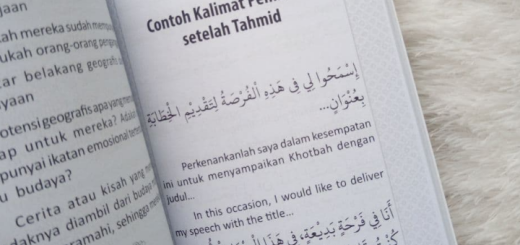 jaan
ah mereka sudah
ukah orang-orang
tar belakang geografis
yaan
otensi geografis apa yang
ap untuk mereka?
punyai ikatan emosional
u budaya?
Cerita atau kisah yang
daknya diambil dari budaya
ramahi, sehingga
Contoh Kalimat
setelah Tahmid
إِسْمَحُوا لِي فِي هَذِهِ الْفُرْصَةُ لِتَقْدِيْمِ الْخِطَابَةِ
بِعُنْوَانِ...
Perkenankanlah saya dalam kesempatan
ini untuk menyampaikan Khotbah dengan
judul...
In this occasion, I would like to deliver
my speech with the title...
أَنَا فِي فَرْحَةٍ بَدِيْعَةٍ، فِي هَذَا